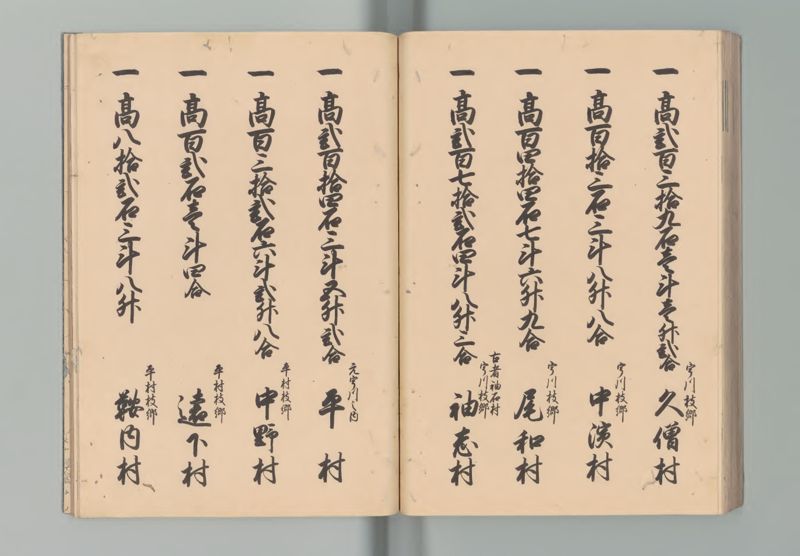 一高弐百三拾九石壱斗壱升弐合
宇川枝郷
久僧村
一高百拾三石三斗八升八合
宇川枝郷
中濱村
一高百四拾四石七斗六升九合
宇川枝郷
尾和村
一高弐百七拾弐石四斗八升三合
古者袖石村
宇川枝郷
袖志村
一高弐百拾四石三斗五升弐合
元宇川之内
平村
一高百三拾弐石六斗弐升八合
平村枝郷
中野村
一高百弐石壱斗四合
平村枝郷
遠下村
一高八拾弐石三斗八升
平村枝郷
鞍内村